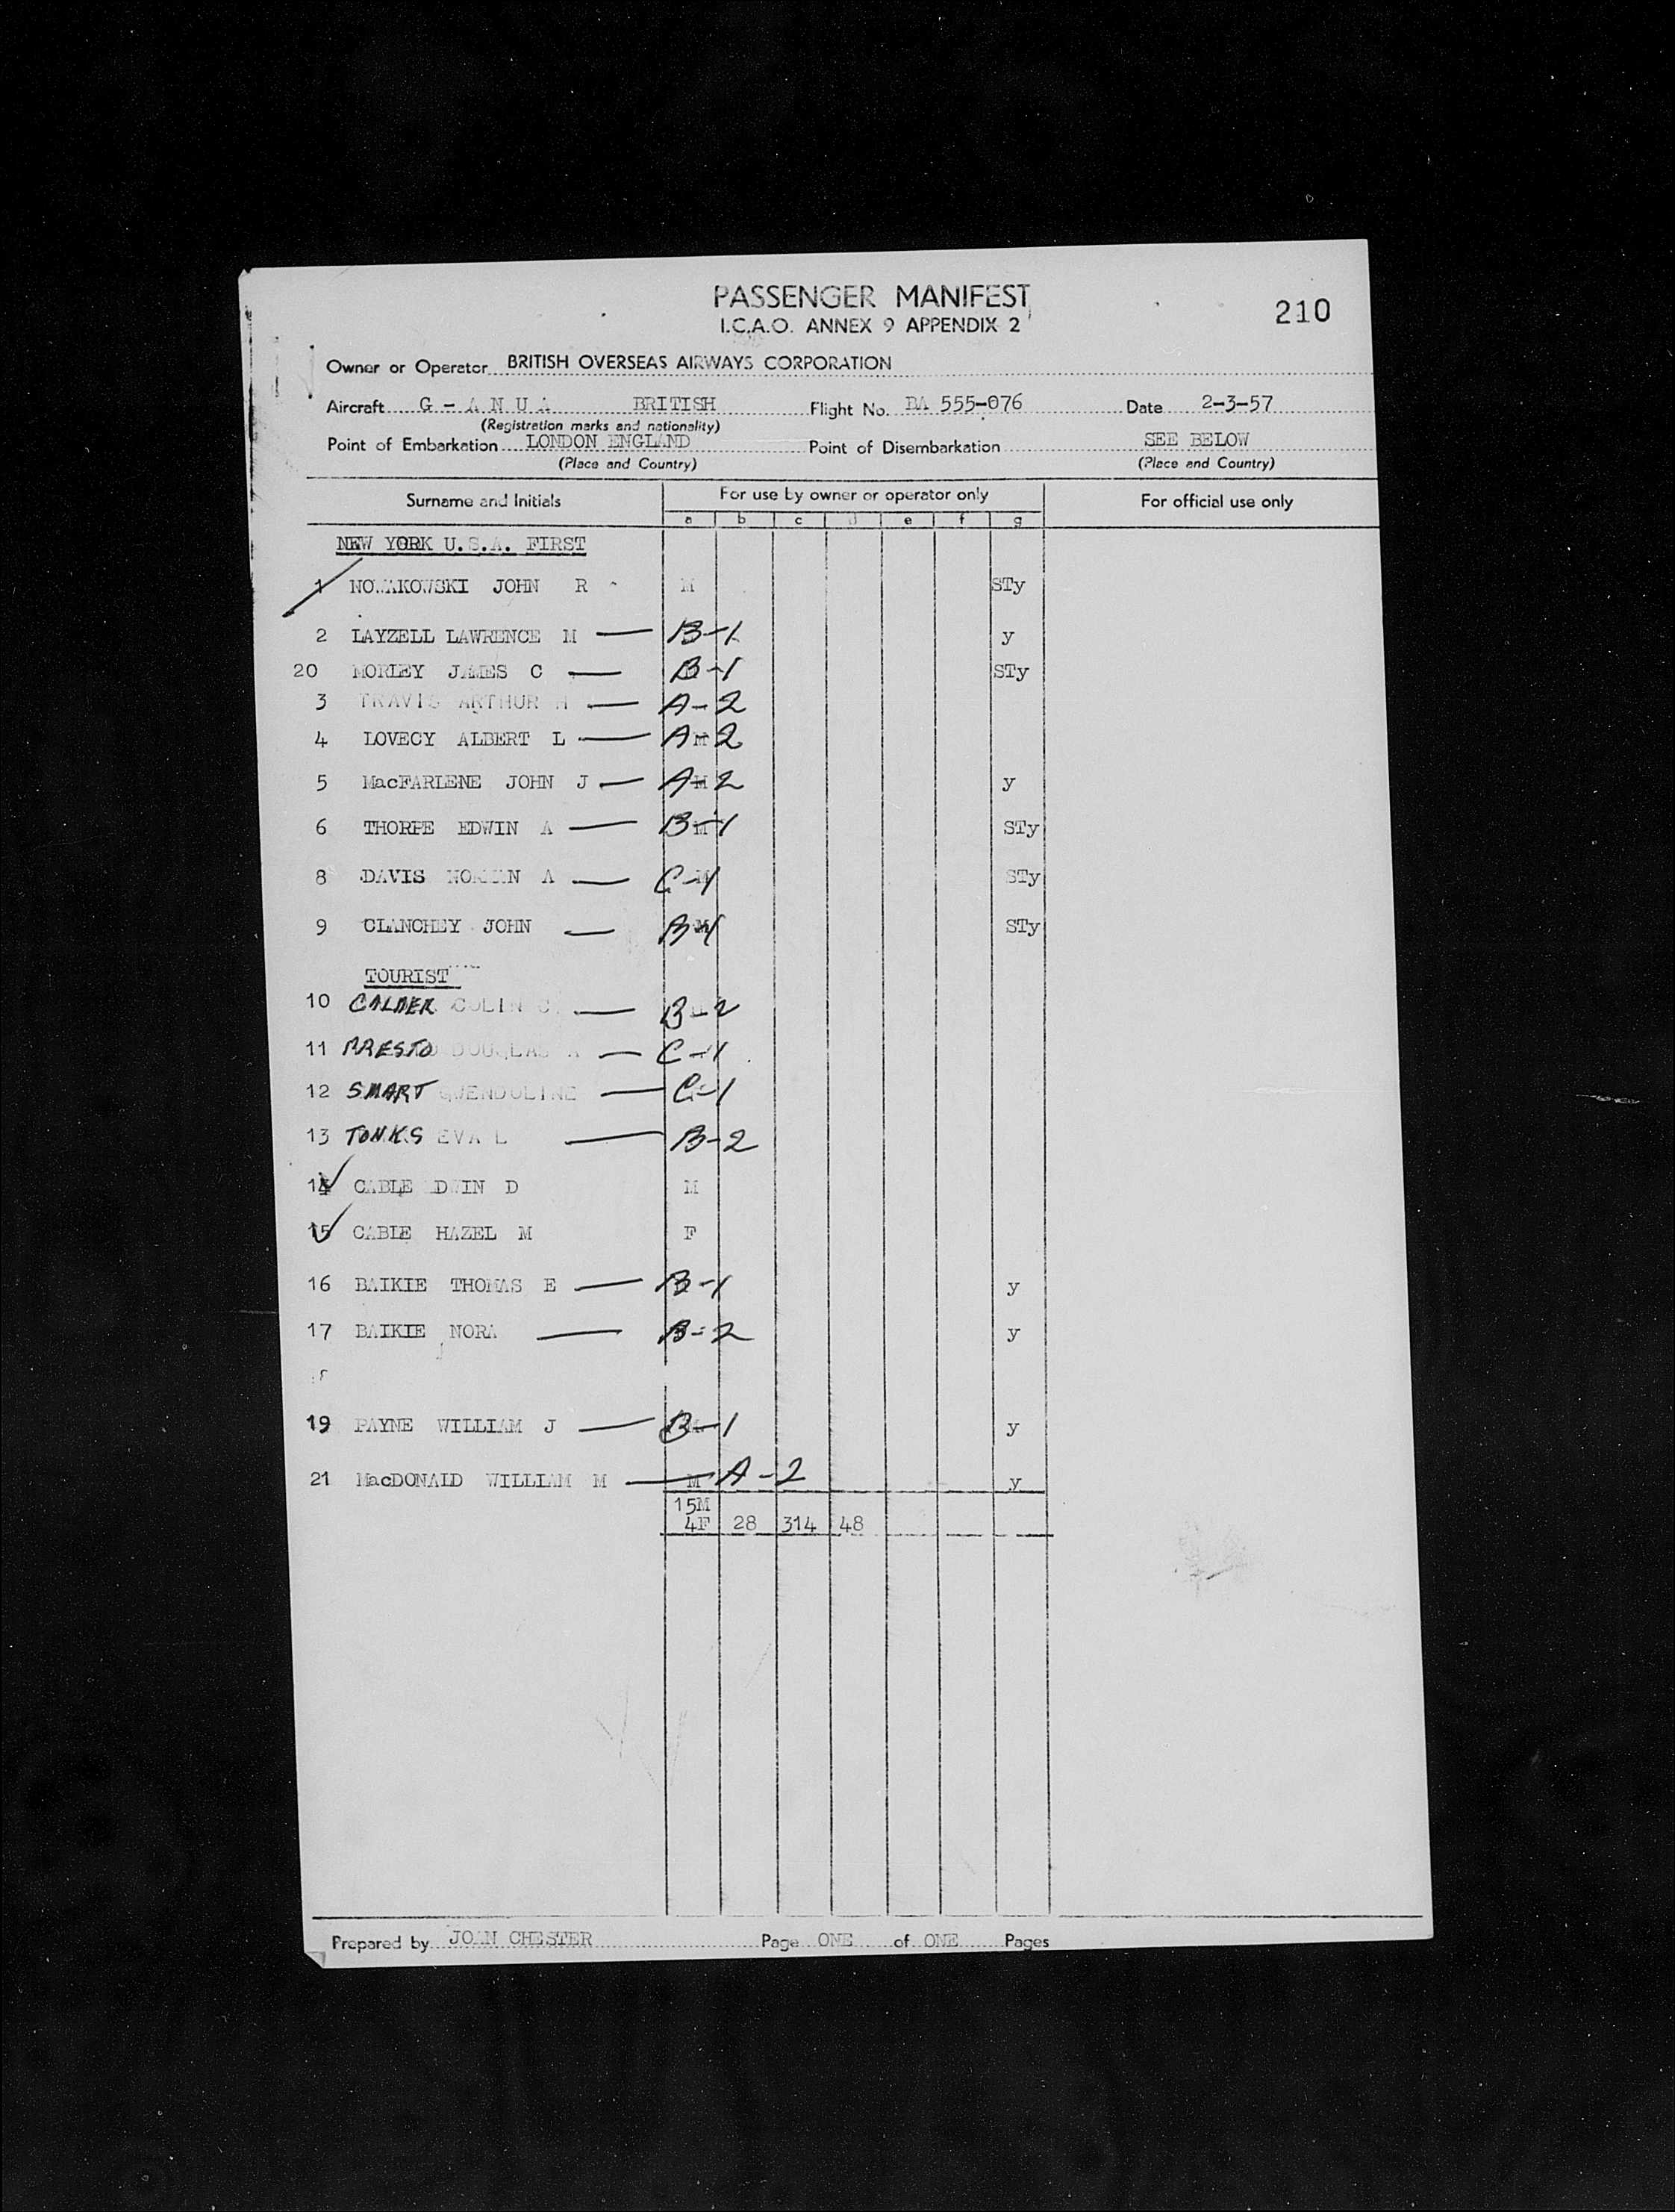 PASSENGER MANIFEST
I.C.A.O. ANNEX 9 APPENDIX 2
210
Owner or Operator BRITISH OVERSEAS AIRWAYS CORPORATION
Aircraft G - A N U A BRITISH Flight No. BA 555-076 Date 2-3-57
(Registration marks and nationality)
Point of Embarkation LONDON ENGLAND Point of Disembarkation SEE BELOW
(Place and Country) (Place and Country)
Surname and Initials For use by owner or operator only For official use only
a b c d e f g
NEW YORK U.S.A. FIRST
1 NOWAKOWSKI JOHN R M STy
2 LAYZELL LAWRENCE M — B-1 y
20 MORLEY JAMES C — B-1 STy
3 TRAVIS ARTHUR H — A-2
4 LOVECY ALBERT L — A M 2
5 MacFARLENE JOHN J — A-M 2 y
6 THORPE EDWIN A — B-M 1 STy
8 DAVIS NORMAN A — C-M 1 STy
9 CLANCHEY JOHN — B-M 1 STy
TOURIST
10 CALDER COLIN C — B-2
11 PRESTO DOUGLAS A — C-1
12 SMART GWENDOLINE — C-1
13 TONKS EVA L — B-2
14 CABLE EDWIN D M
15 CABLE HAZEL M F
16 BAIKIE THOMAS E — B-1 y
17 BAIKIE NORA — B-2 y
19 PAYNE WILLIAM J — B-1 y
21 MacDONALD WILLIAM M — M A-2 y
15M
4F 28 314 48
Prepared by JOAN CHESTER Page ONE of ONE Pages